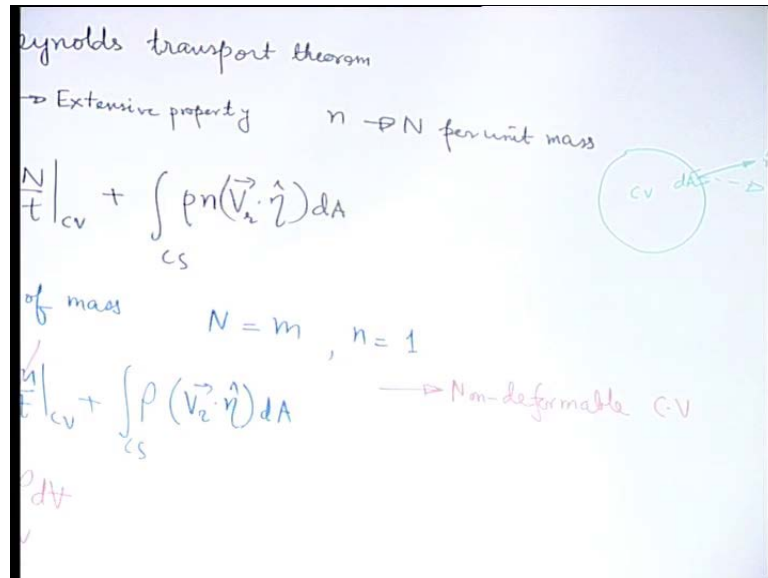 eynolds transport theorem
→ Extensive property n → N per unit mass
CV dA
N/t|CV + ∫CS ρn(V⃗r·η̂)dA
of mass N = m , n = 1
t|CV + ∫CS ρ(V⃗r·η̂)dA → Non-deformable C.V
ρdV